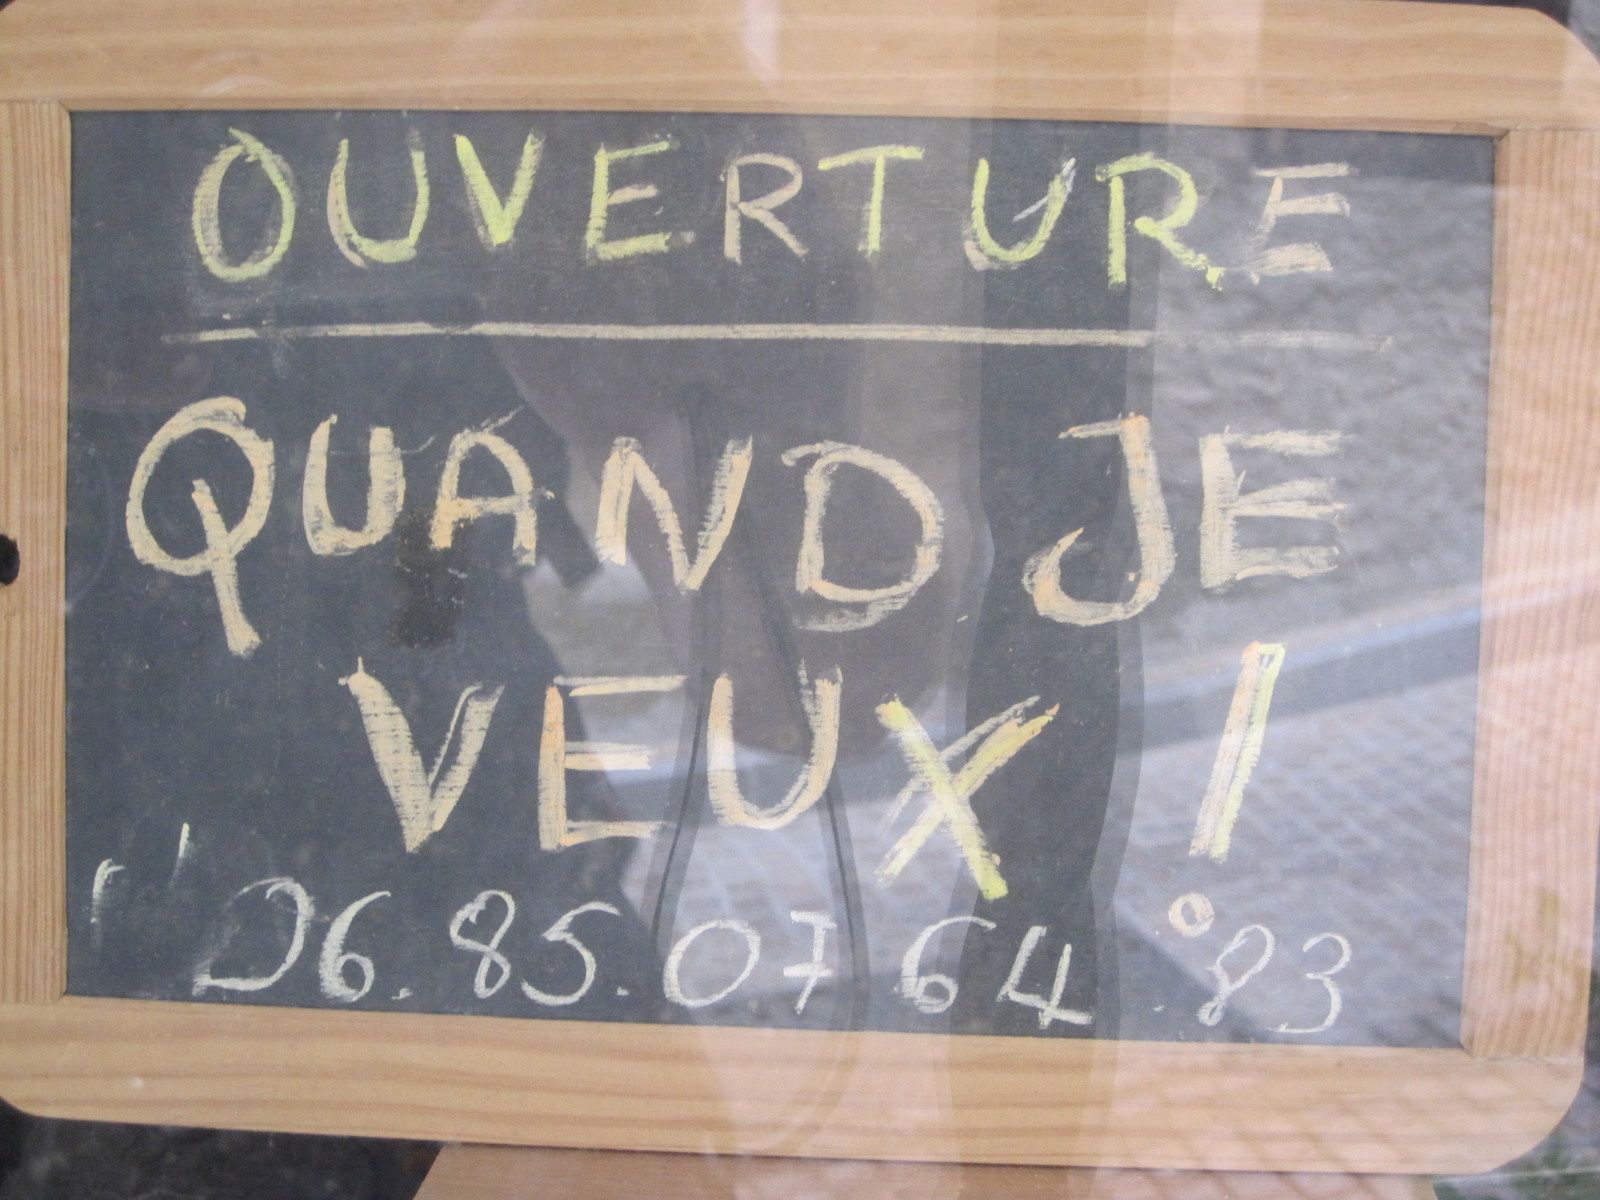 OUVERTURE
QUAND JE
VEUX !
06.85.07 64.83